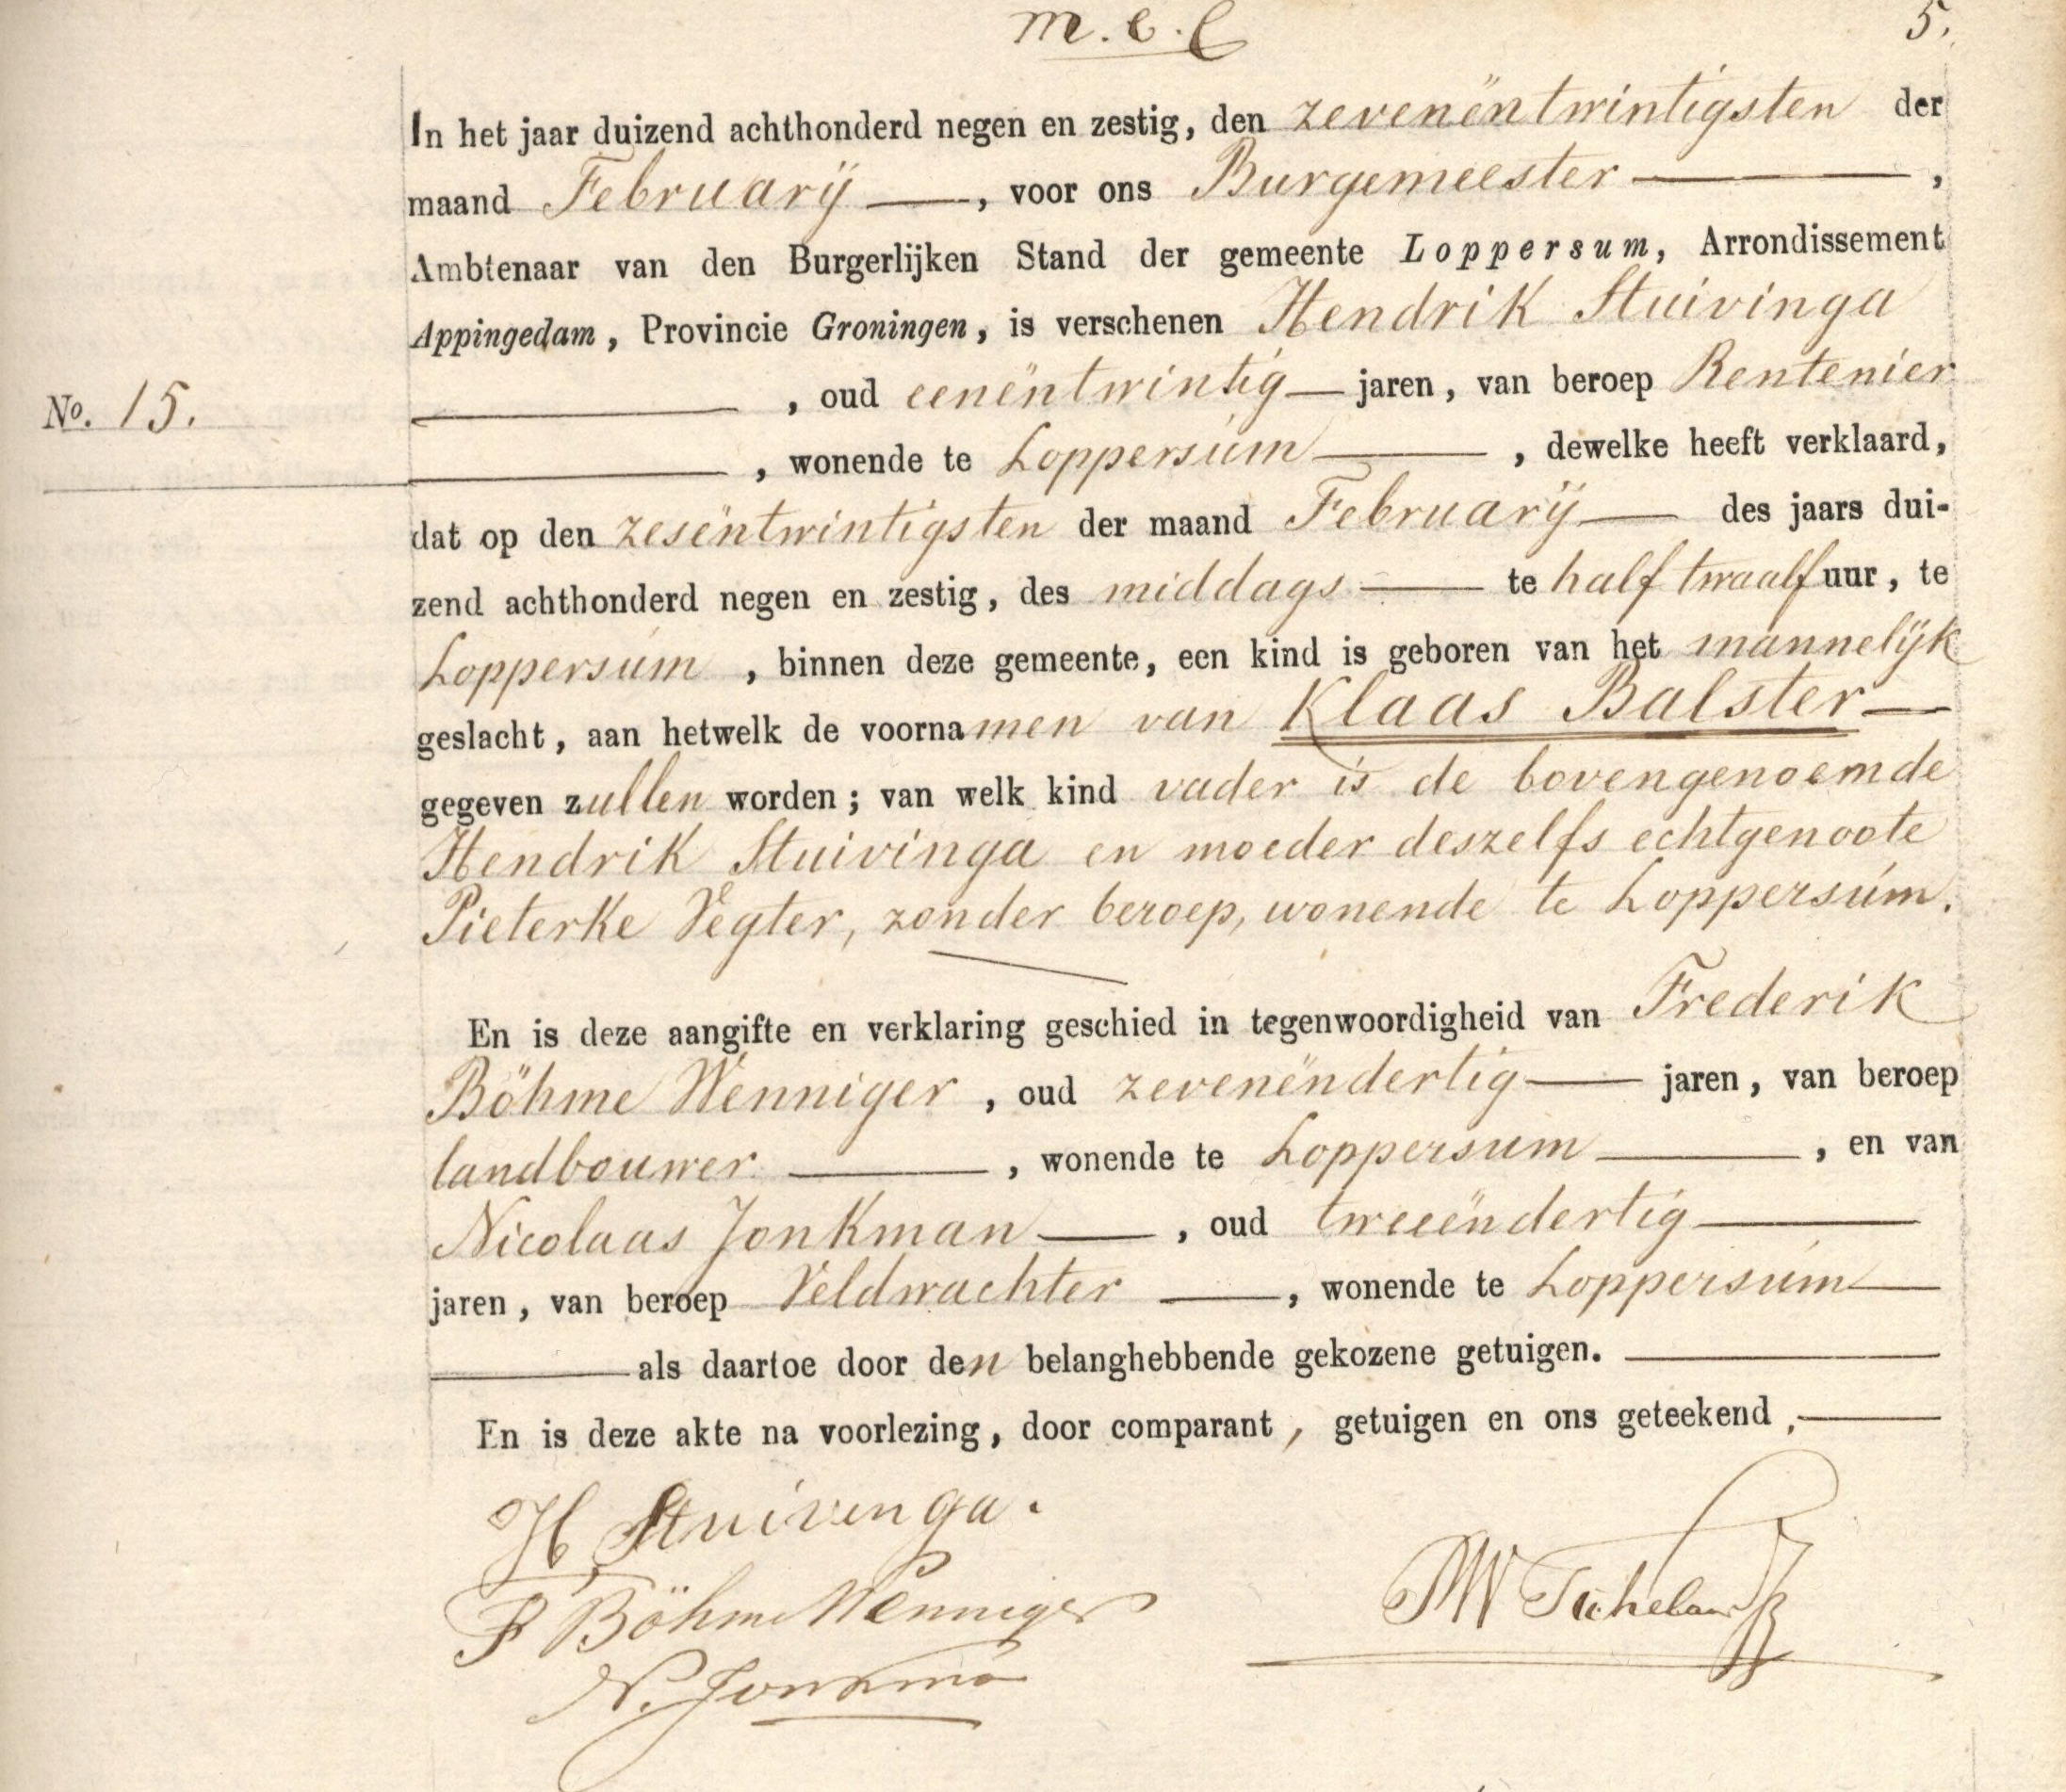 m.e.l
5.
In het jaar duizend achthonderd negen en zestig, den zevenëntwintigsten der
maand Februarij ——, voor ons Burgemeester ——,
Ambtenaar van den Burgerlijken Stand der gemeente Loppersum, Arrondissement
Appingedam, Provincie Groningen, is verschenen Hendrik Stuivinga
——, oud eenëntwintig — jaren, van beroep Rentenier
No. 15.
——, wonende te Loppersum ——, dewelke heeft verklaard,
dat op den zesëntwintigsten der maand Februarij —— des jaars dui-
zend achthonderd negen en zestig, des middags —— te half twaalf uur, te
Loppersum, binnen deze gemeente, een kind is geboren van het mannelijk
geslacht, aan hetwelk de voornamen van Klaas Balster —
gegeven zullen worden; van welk kind vader is de bovengenoemde
Hendrik Stuivinga en moeder deszelfs echtgenoote
Pieterke Vegter, zonder beroep, wonende te Loppersum.
En is deze aangifte en verklaring geschied in tegenwoordigheid van Frederik
Böhme Wenniger, oud zevenëndertig —— jaren, van beroep
landbouwer ——, wonende te Loppersum ——, en van
Nicolaas Jonkman ——, oud tweeëndertig ——
jaren, van beroep Veldwachter ——, wonende te Loppersum ——
—— als daartoe door den belanghebbende gekozene getuigen. ——
En is deze akte na voorlezing, door comparant, getuigen en ons geteekend, ——
H Stuivenga.
F Böhme Wenniger
N. Jonkman